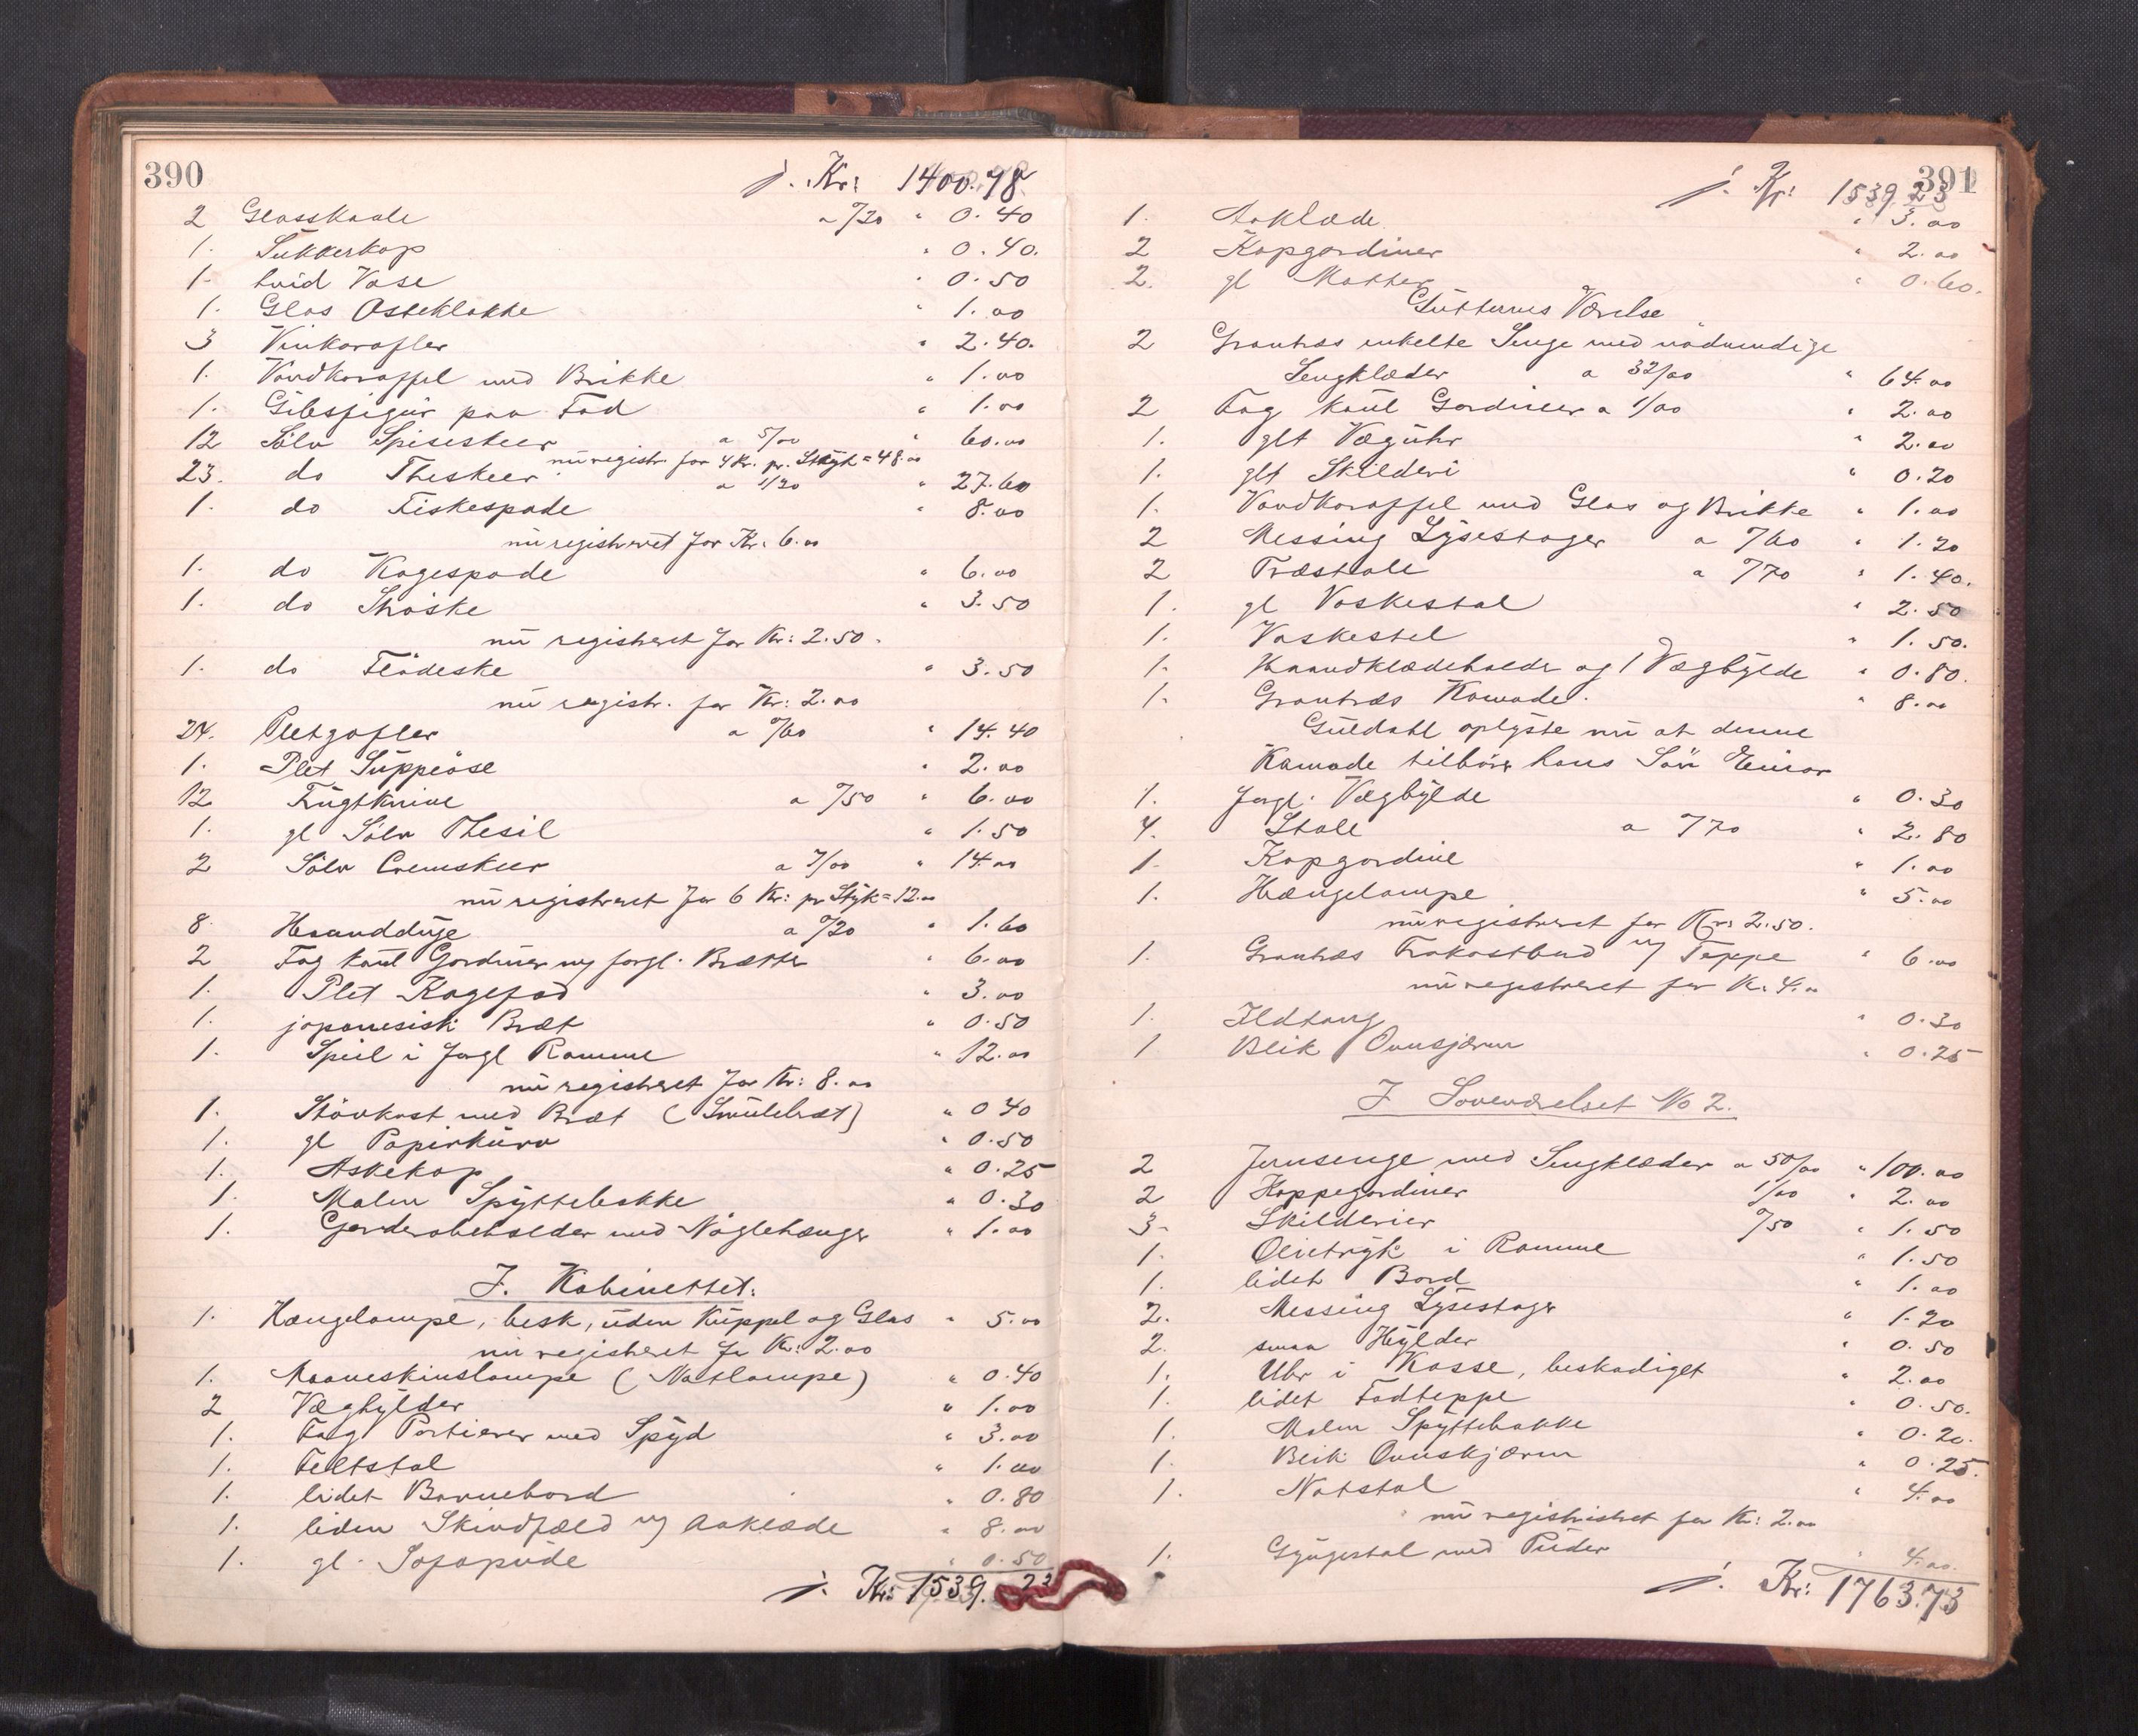 390
j. Kr: 1400.48
2 Glasskaale a %20 " 0.40
1. Sukkerkop " 0.40.
1. hvid Vase " 0.50
1. Glas Osteklokke " 1.00
3 Vinkarafler " 2.40.
1. Vandkaraffel med Brikke " 1.00
1. Gibsfigur paa Fod " 1.00
12 Sölv Spiseskeer a 5/00 " 60.00
nu registr. for 4 Kr. pr. Styk = 48.00
23. do Theskeer a 1/20 " 27.60
1. do Fiskespade " 8.00
nu registreret for Kr. 6.00
1. do Kagespade " 6.00
1. do Ströske " 3.50
nu registreret for Kr: 2.50.
1. do Flödeske " 3.50
nu registr. for Kr: 2.00
24. Pletgafler a %60 " 14.40
1. Plet Suppeöse " 2.00
12 Frugtknive a %50 " 6.00
1. gl Sölv Thesil " 1.50
2 Sölv Cremskeer a 7/00 " 14.00
nu registreret for 6 Kr: pr Styk = 12.00
8 Haandduge a %20 " 1.60
2 Fag kaul Gardiner og forgl. Brætter " 6.00
1. Plet Kagefad " 3.00
1. japanesisk Bræt " 0.50
1. Speil i forgl Ramme " 12.00
nu registreret for Kr: 8.00
1. Stövkost med Bræt (Smulebræt) " 0 40
1. gl Papirkurv " 0.50
1. Askekop " 0.25
1. Malm Spyttebakke " 0.30
1. Garderobeholder med Nöglehænger " 1.00
I. Kabinettet.
1. Hængelampe, besk, uden Kuppel og Glas " 5.00
nu registreret for Kr: 2.00
1. Maaneskinslampe (Natlampe) " 0.40
2 Væghylder " 1.00
1. Fag Portierer med Spyd " 3.00
1. Feltstol " 1.00
1. lidet Barnebord " 0.80
1. liden Skindfæld og Aaklæde " 8.00
1. gl. Sofapude " 0.50
j. Kr: 1539.23
391
j. Kr: 1539.23
1. Aaklæde " 3.00
2 Kapgardiner " 2.00
2. gl Matter " 0.60.
Gutternes Værelse
2 Grantræs enkelte Senge med nödvendige
Sengklæder a 32/00 " 64.00
2 Fag kaul Gardiner a 1/00 " 2.00
1. glt Væguhr " 2.00
1. glt Skilderi " 0.20
1. Vandkaraffel med Glas og Brikke " 1.00
2 Messing Lysestager a %60 " 1.20
2 Træstole a %70 " 1.40.
1. gl Vaskestol " 2.50
1. Vaskestel " 1.50.
1. Haandklædeholder og 1 Væghylde " 0.80.
1. Grantræs Komode. " 8.00
Guldahl oplyste nu at denne
Komode tilhörer hans Sön Einar
1. forgl. Væghylde " 0.30
4. Stole a %70 " 2.80
1. Kapgardine " 1.00
1. Hængelampe " 5.00
nu registreret for Kr: 2.50.
1. Grantræs Frokostbord og Teppe " 6.00
nu registreret for Kr. 4.00
1. Ildtang " 0.30
1 Blik Ovnsjærm " 0.25
I Soveværelset No 2.
2 Jernsenge med Sengklæder a 50/00 " 100.00
2 Kappegardiner 1/00 " 2.00
3. Skilderier %50 " 1.50
1. Olietryk i Ramme " 1.50
1. lidet Bord " 1.00
2. Messing Lysestager " 1.20
2. smaa Hylder " 0.50
1. Uhr i Kasse, beskadiget " 2.00
1. lidet Fodteppe " 0.50.
1. Malm Spyttebakke " 0.20.
1. Blik Ovnskjærm " 0.25.
1. Natstol " 4.00
nu registristret for Kr: 2.00
1. Gyngestol med Puder " 4.00.
j. Kr: 1763.73